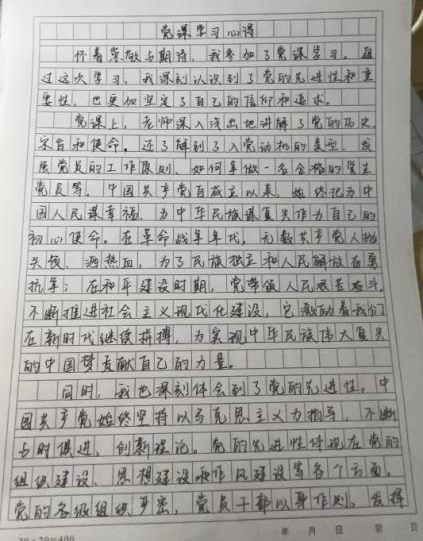 党课学习心得
怀着崇敬与期待，我参加了党课学习。通
过这次学习，我深刻认识到了党的先进性和重
要性，也更加坚定了自己的信仰和追求。
党课上，老师深入浅出地讲解了党的历史、
宗旨和使命。还了解到了入党动机的类型，发
展党员的工作原则，如何争做一名合格的学生
党员等。中国共产党自成立以来，始终把为中
国人民谋幸福、为中华民族谋复兴作为自己的
初心使命。在革命战争年代，无数共产党人抛
头颅、洒热血，为了民族独立和人民解放奋勇
抗争；在和平建设时期，党带领人民艰苦奋斗，
不断推进社会主义现代化建设，它激励着我们
在新时代继续拼搏，为实现中华民族伟大复兴
的中国梦贡献自己的力量。
同时，我也深刻体会到了党的先进性。中
国共产党始终坚持以马克思主义为指导，不断
与时俱进，创新理论。党的先进性体现在党的
组织建设、思想建设和作风建设等各个方面。
党的各级组织严密，党员干部以身作则，发挥
20×20=400
年 月 日 第 页